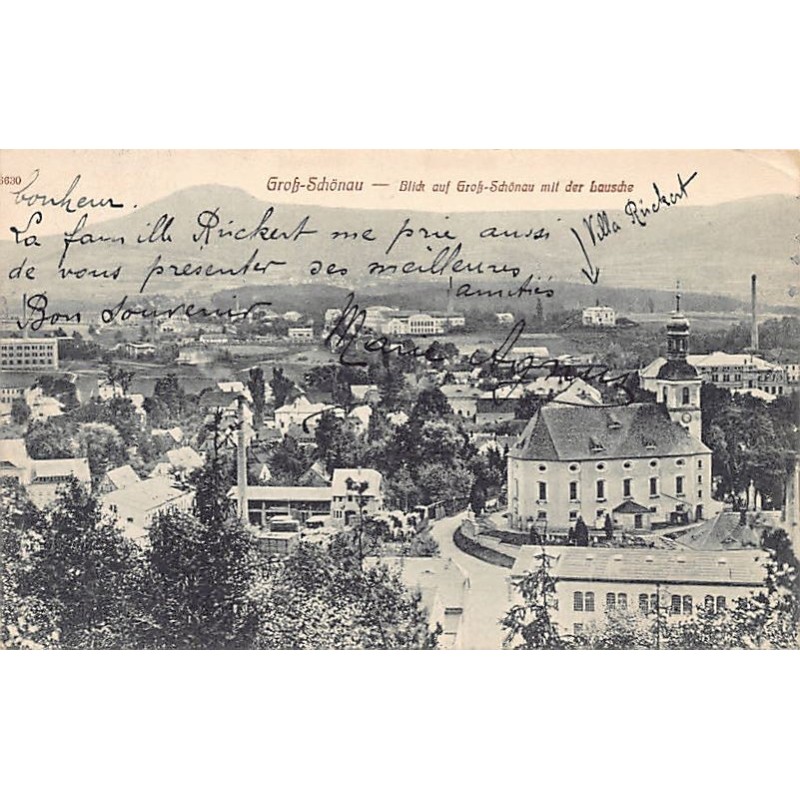 6630
Groß-Schönau — Blick auf Groß-Schönau mit der Lausche
bonheur.
La famille Rückert me prie aussi
de vous présenter ses meilleures
amitiés
Bon souvenir
Marie
Villa Rückert